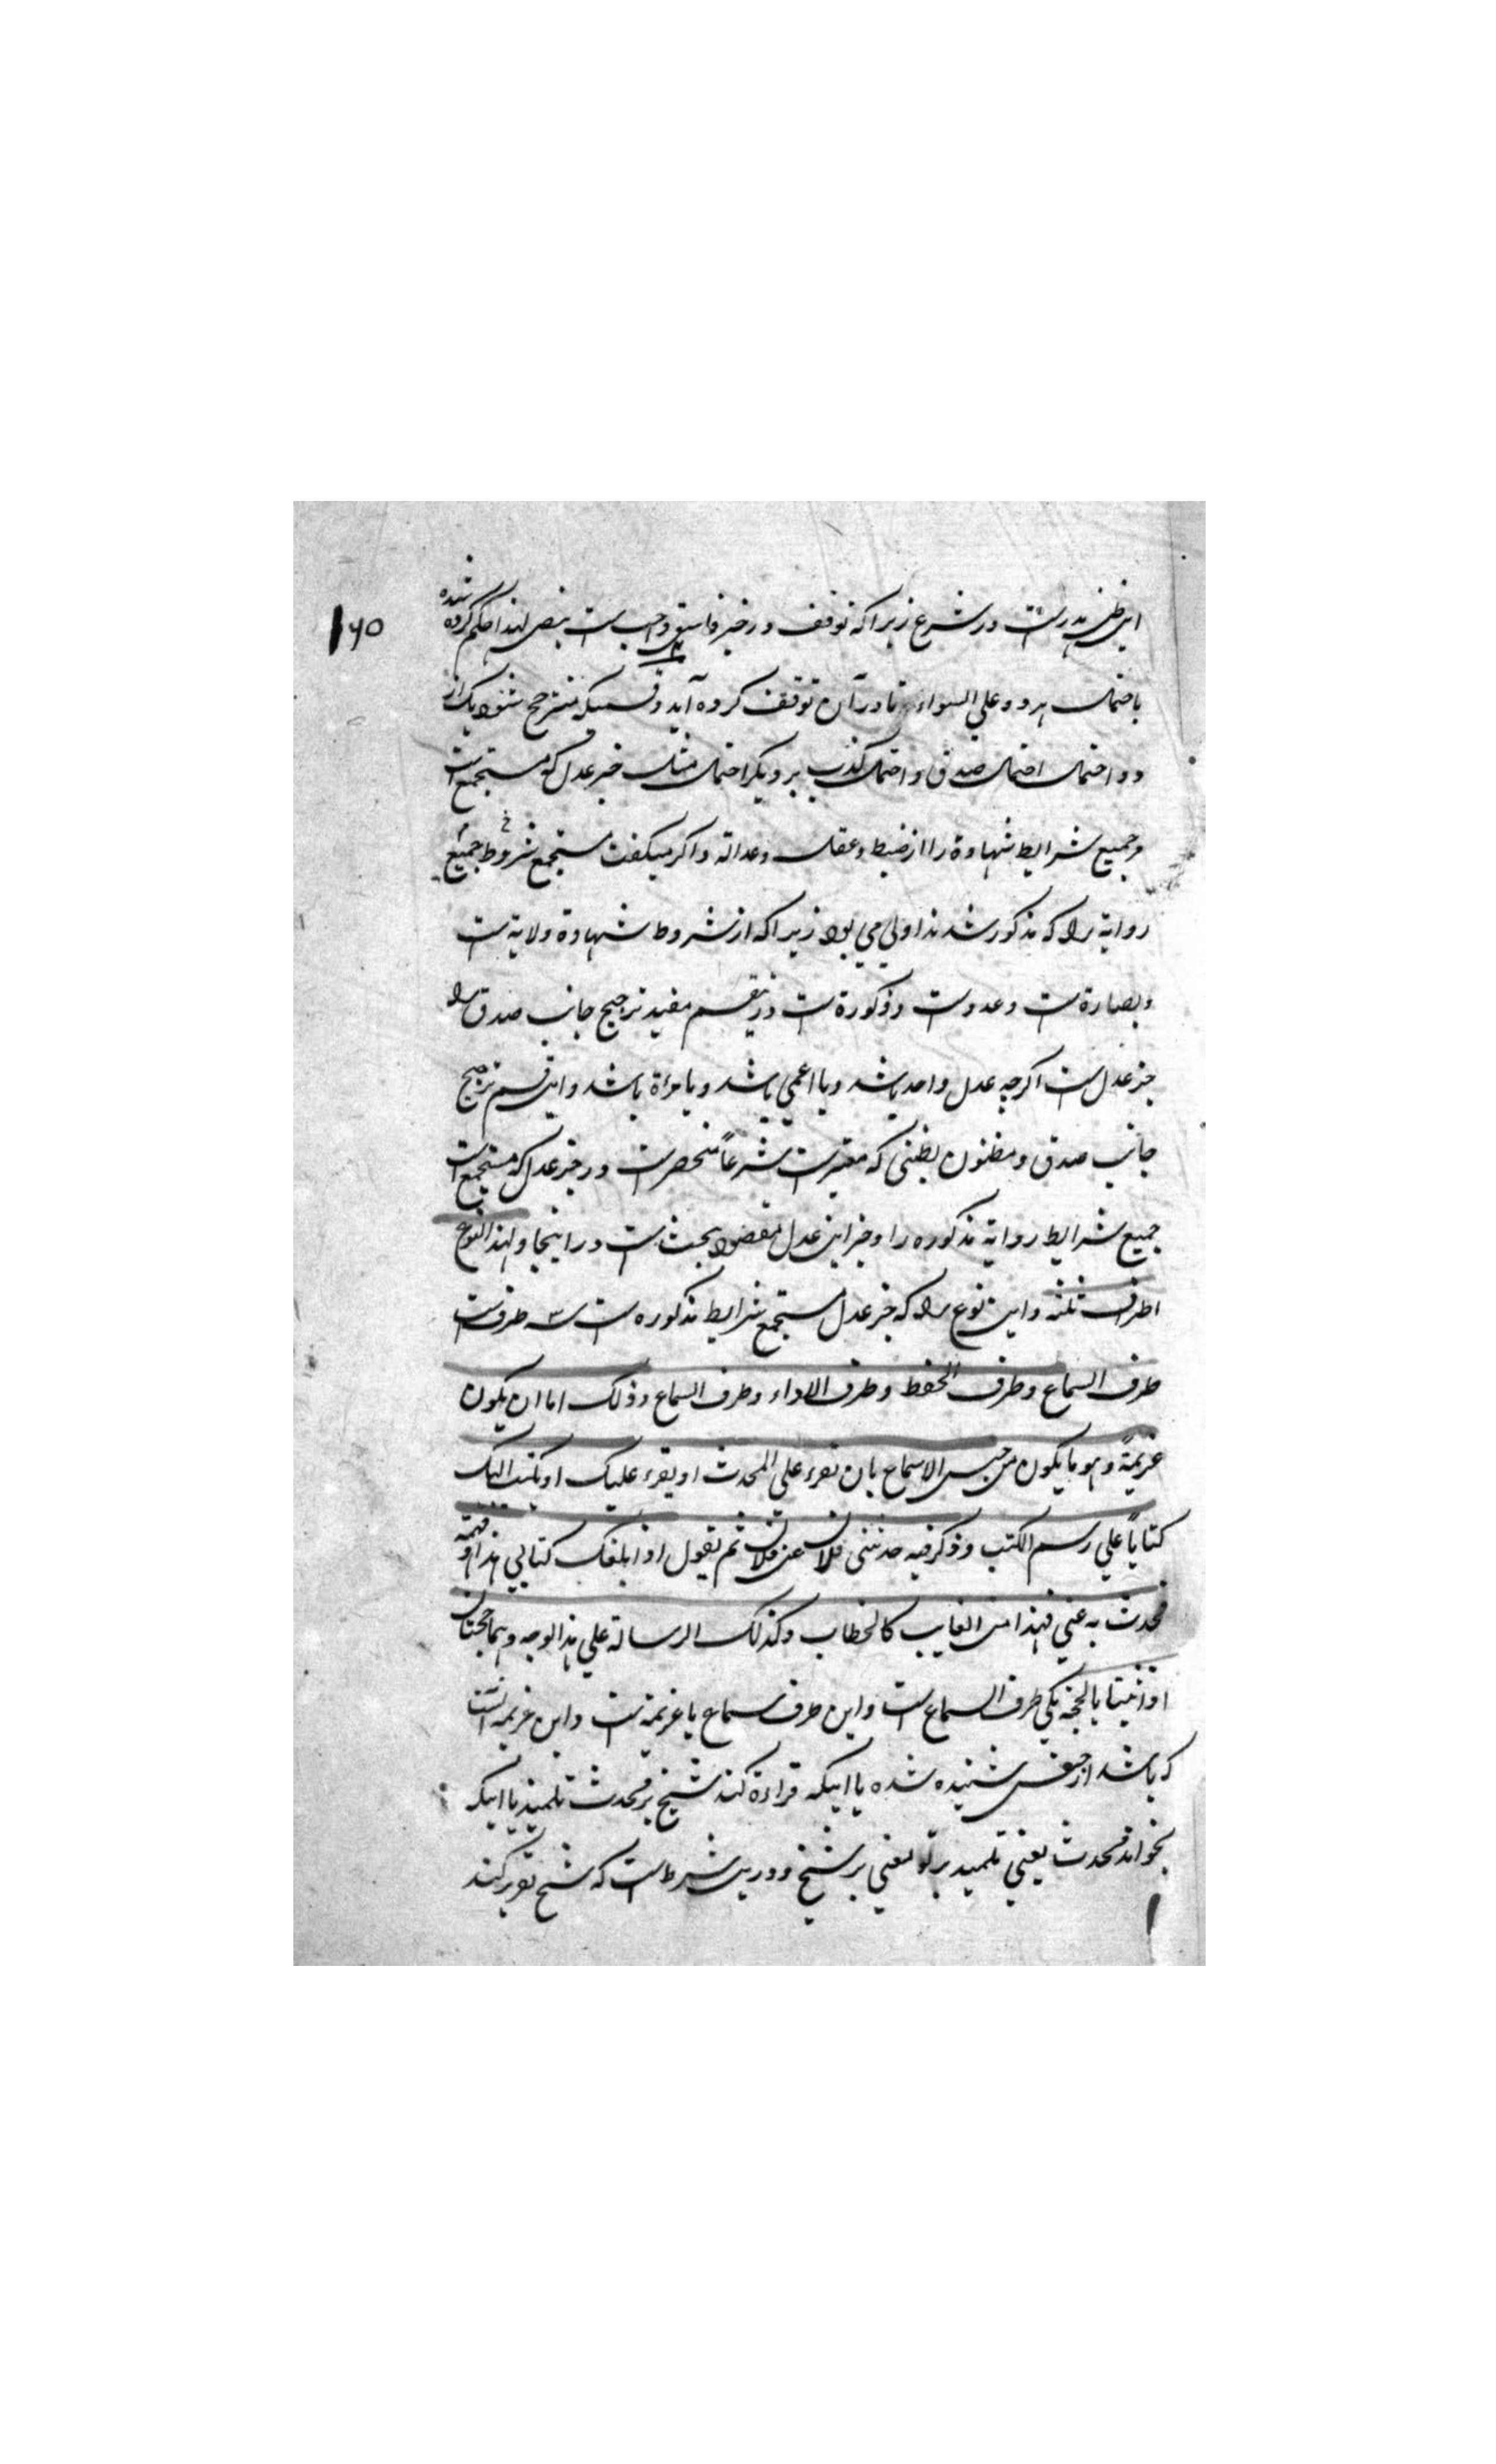 این ظن هدرست در شرع زیرا که توقف در خبر فاسق واجب ست بنص لهذا حکم کرده شده
۱۶۵
باحتمال هر دو علی السواء تا در آن توقف کرده آید و قسمیکه مترجح شود یک از
دو احتمال احتمال صدق و احتمال کذب بر دیگر احتمال مثل خبر عدل که مستجمع ست
مر جمیع شرایط شهادة را از ضبط و عقل و عدالة و اکر میکفت مستجمع شروط جمیع
روایة را که مذکور شدند اولی می بود زیرا که از شروط شهادة ولایة ست
و بصارة ست و عدد ست و ذکورة ست درین قسم مفید ترجیح جانب صدق را
خبر عدل ست اکرچه عدل واحد باشد و یا اعمی باشد و یا مراة باشد و این قسم ترجیح
جانب صدق و مظنون بظنی که معتبر ست شرعاً منحصر ست در خبر عدل که مستجمع ست
جمیع شرایط روایة مذکوره را و خبر این عدل مقصود بحث ست در اینجا و لهذا النوع
اطراف ثلثة و این نوع را که خبر عدل مستجمع شرایط مذکوره ست سه طرف ست
طرف السماع و طرف الحفظ و طرف الاداء و طرف السماع و ذلک اما ان یکون
عزیمةً و هو ما یکون من جنس الاسماع بان تقرء علی المحدث او یقرء علیک او یکتب الیک
کتاباً علی رسم الکتب و ذکر فیه حدثنی فلان عن فلان ثم یقول اذا بلغک کتابی هذا و فهمته
فحدث به عنی فهذا من الغایب کالخطاب و کذلک الرسالة علی هذا الوجه و هما حجتان
اذا ثبتا بالحجة یکی طرف السماع ست و این طرف سماع یا عزیمة ست و این عزیمه آنست
که باشد از جنس شنیده شده یا اینکه قراءة کند شیخ بر محدث تلمیذ یا اینکه
بخواند محدث یعنی تلمیذ بر تو یعنی بر شیخ و درین شرط ست که شیخ تقریر کند